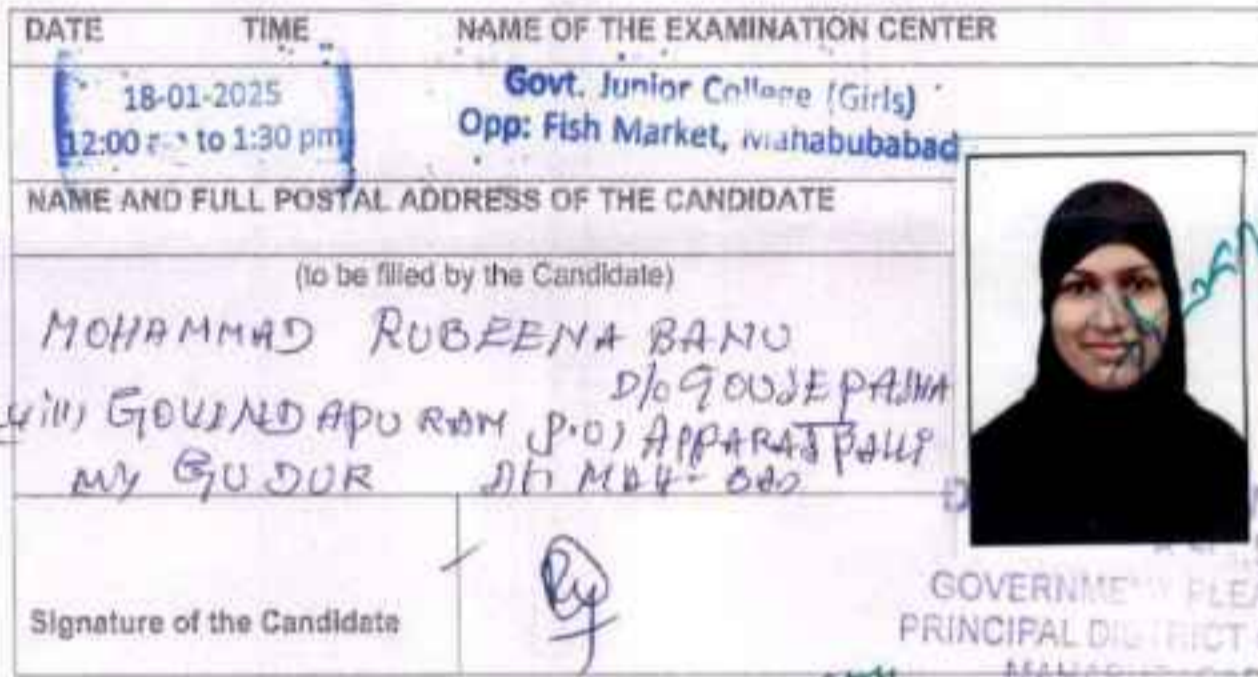 DATE TIME NAME OF THE EXAMINATION CENTER
18-01-2025
12:00 to 1:30 pm
Govt. Junior College (Girls)
Opp: Fish Market, Mahabubabad
NAME AND FULL POSTAL ADDRESS OF THE CANDIDATE
(to be filled by the Candidate)
MOHAMMAD RUBEENA BANU
D/o GOUSE PASHA
vill) GOVINDAPURAM P.O) APPARAJPALLI
GUDUR MAH-BAD
Signature of the Candidate
GOVERNMENT
PRINCIPAL DISTRICT